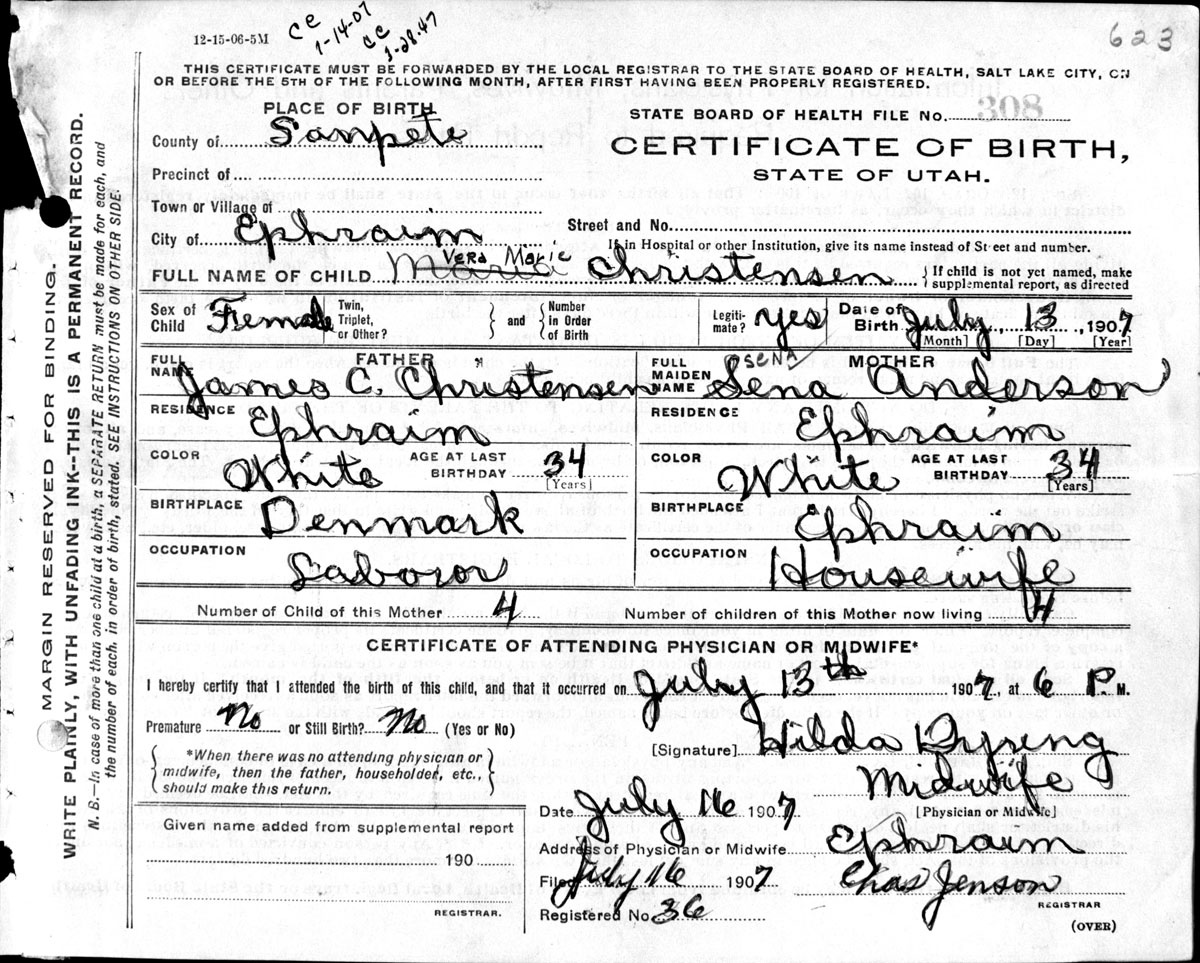 12-15-06-5M
CC
1-14-07
CC
1-28-47
623
THIS CERTIFICATE MUST BE FORWARDED BY THE LOCAL REGISTRAR TO THE STATE BOARD OF HEALTH, SALT LAKE CITY, ON
OR BEFORE THE 5TH OF THE FOLLOWING MONTH, AFTER FIRST HAVING BEEN PROPERLY REGISTERED.
PLACE OF BIRTH
County of Sanpete
Precinct of
Town or Village of
City of Ephraim
STATE BOARD OF HEALTH FILE No. 308
CERTIFICATE OF BIRTH,
STATE OF UTAH.
Street and No.
If in Hospital or other Institution, give its name instead of Street and number.
FULL NAME OF CHILD Maria VERA Marie Christensen { If child is not yet named, make supplemental report, as directed
Sex of Child Female Twin, Triplet, or Other? } and { Number in Order of Birth Legiti- mate? yes Date of Birth July 13, 1907
[Month] [Day] [Year]
FATHER
FULL NAME James C. Christensen
RESIDENCE Ephraim
COLOR White AGE AT LAST BIRTHDAY 34
[Years]
BIRTHPLACE Denmark
OCCUPATION Labor
MOTHER
FULL MAIDEN NAME SENA Sena Anderson
RESIDENCE Ephraim
COLOR White AGE AT LAST BIRTHDAY 34
[Years]
BIRTHPLACE Ephraim
OCCUPATION Housewife
Number of Child of this Mother 4 Number of children of this Mother now living 4
CERTIFICATE OF ATTENDING PHYSICIAN OR MIDWIFE*
I hereby certify that I attended the birth of this child, and that it occurred on July 13th 1907, at 6 P. M.
Premature No or Still Birth? No (Yes or No)
*When there was no attending physician or
midwife, then the father, householder, etc.,
should make this return.
[Signature] Hilda Dyreng
Midwife
[Physician or Midwife]
Date July 16 1907
Address of Physician or Midwife Ephraim
Filed July 16 1907 Chas Jenson
REGISTRAR
Registered No. 36
(OVER)
Given name added from supplemental report
190
REGISTRAR.
MARGIN RESERVED FOR BINDING.
WRITE PLAINLY, WITH UNFADING INK--THIS IS A PERMANENT RECORD.
N. B.—In case of more than one child at a birth, a SEPARATE RETURN must be made for each, and
the number of each, in order of birth, stated. SEE INSTRUCTIONS ON OTHER SIDE.